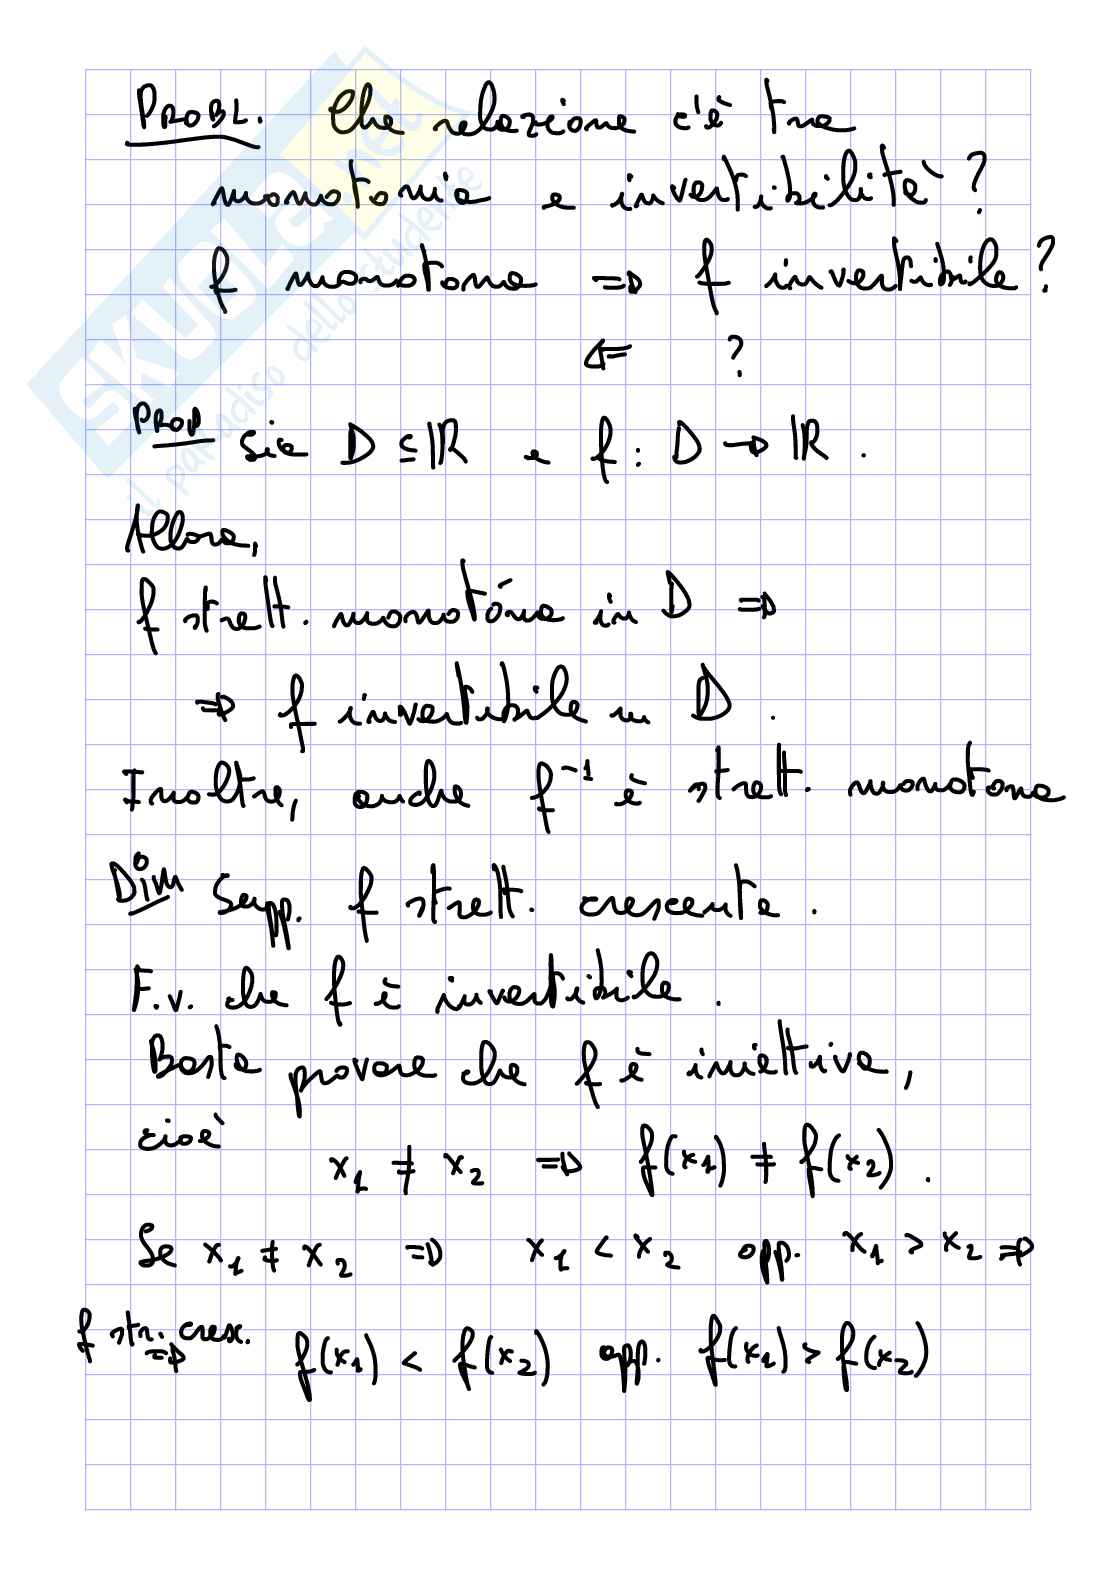 PROBL. Che relazione c'è tra
monotonia e invertibilità?
f monotona ⇒ f invertibile?
⇐ ?
PROP Sia D ⊆ ℝ e f: D → ℝ.
Allora,
f strett. monotóna in D ⇒
⇒ f invertibile in D.
Inoltre, anche f⁻¹ è strett. monotona
Dim Supp. f strett. crescente.
F.v. che f è invertibile.
Basta provare che f è iniettiva,
cioè
x₁ ≠ x₂ ⇒ f(x₁) ≠ f(x₂).
Se x₁ ≠ x₂ ⇒ x₁ < x₂ opp. x₁ > x₂ ⇒
f str. cresc.
⇒ f(x₁) < f(x₂) opp. f(x₁) > f(x₂)
SKUOLA.net
il paradiso dello studente